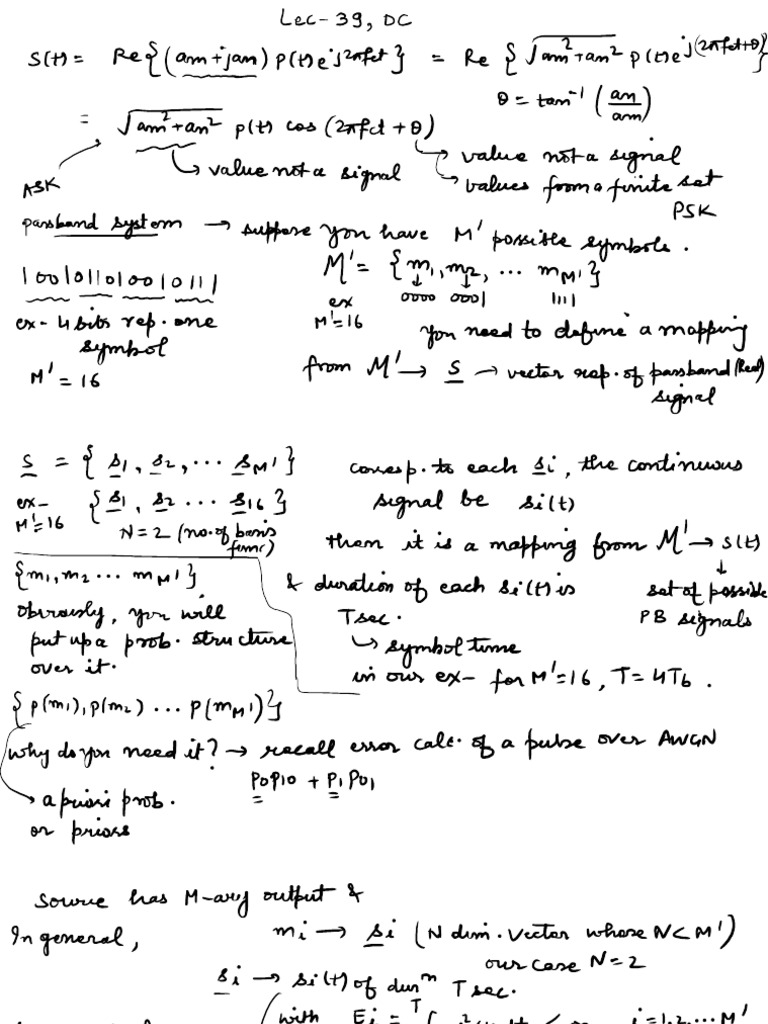 Lec-39, DC
S(t) = Re{(am+jan) p(t)e^j2πfct} = Re {√am²+an² p(t)e^j(2πfct+θ)}
θ = tan⁻¹ (an/am)
= √am²+an² p(t) cos (2πfct + θ)
ASK
↳ value not a signal
↳ value not a signal
↳ values from a finite set
PSK
passband system → suppose you have M' possible symbols.
1001011010010111
M' = {m1, m2, ... mM'}
↓ ↓
0000 0001 1111
ex
M'=16
ex- 4 bits rep. one
symbol
M' = 16
you need to define a mapping
from M' → S → vector rep. of passband (Real)
signal
S = {S1, S2, ... SM'}
ex- M'=16 {S1, S2 ... S16}
N=2 (no. of basis func)
corresp. to each Si, the continuous
signal be Si(t)
then it is a mapping from M' → S(t)
↓
set of possible
PB signals
& duration of each Si(t) is
T sec.
↳ symbol time
in our ex- for M'=16, T=4Tb.
{m1, m2 ... mM'}
obviously, you will
put up a prob. structure
over it.
{p(m1), p(m2) ... p(mM')}
why do you need it? → recall error calc. of a pulse over AWGN
p0p10 + p1p01
→ a priori prob.
or priors
Source has M-ary output &
In general, mi → Si (N dim. vector whose N<M')
our case N=2
Si → Si(t) of durⁿ T sec.
with Ei = i=1,2,...M'